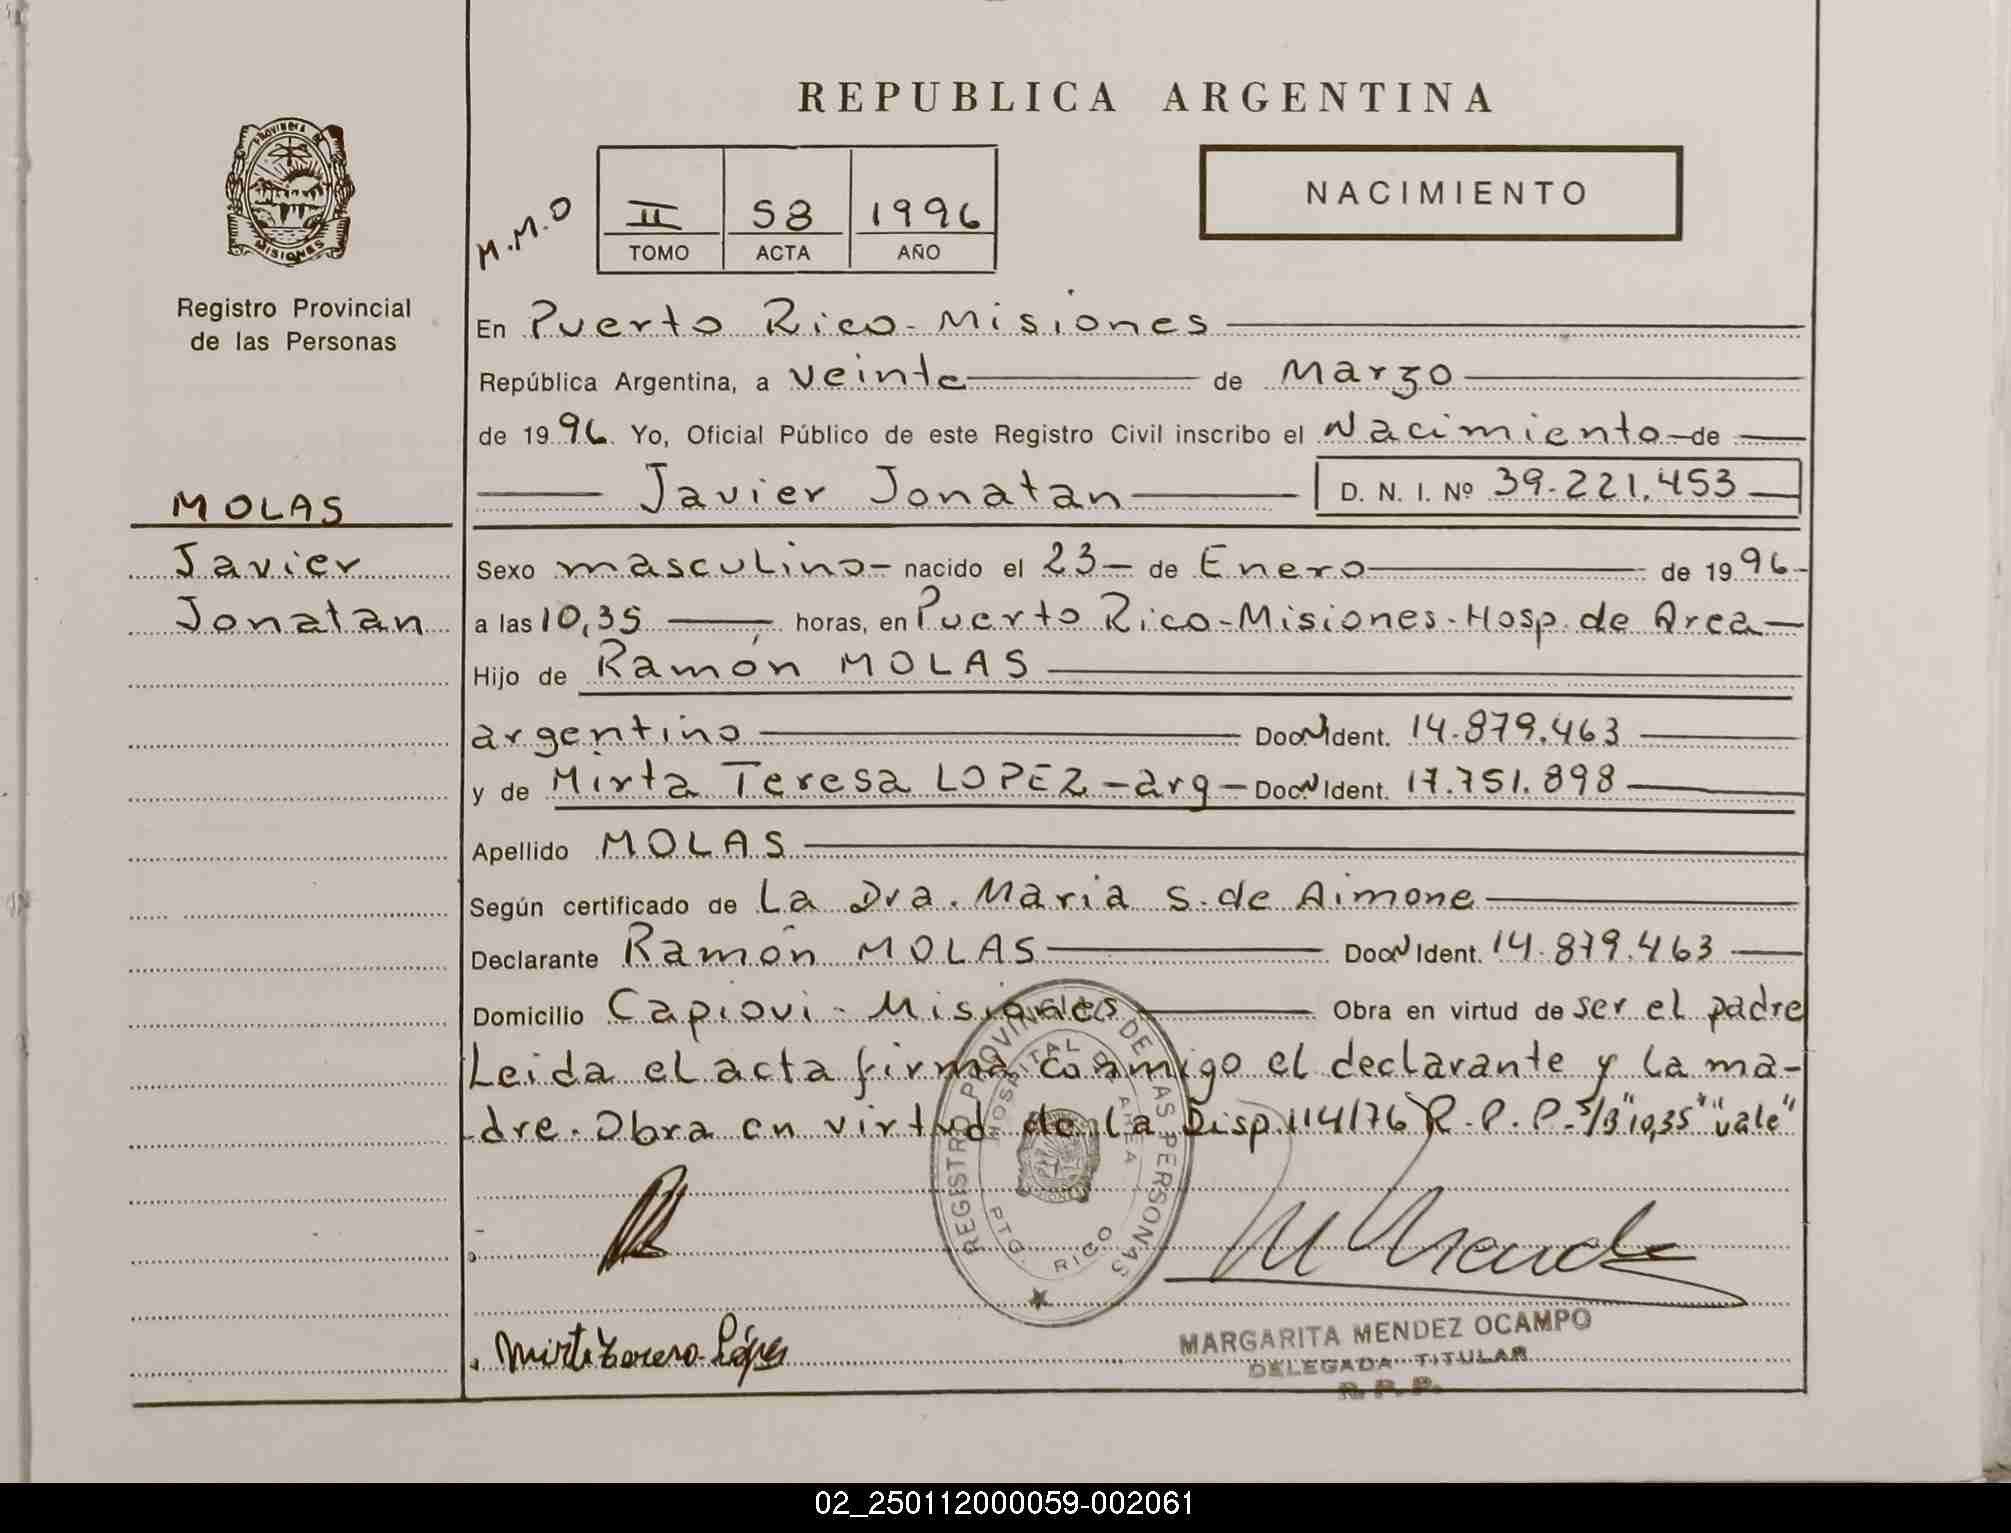 REPUBLICA ARGENTINA
PROVINCIA DE MISIONES
Registro Provincial
de las Personas
M.M.O
II 58 1996
TOMO ACTA AÑO
NACIMIENTO
En Puerto Rico - Misiones
República Argentina, a veinte de Marzo
de 1996. Yo, Oficial Público de este Registro Civil inscribo el Nacimiento de
Javier Jonatan D. N. I. Nº 39.221.453
MOLAS
Javier
Jonatan
Sexo masculino - nacido el 23 - de Enero de 1996 -
a las 10,35 horas, en Puerto Rico - Misiones - Hosp. de Area -
Hijo de Ramón MOLAS
argentino Doc. N Ident. 14.879.463
y de Mirta Teresa LOPEZ - arg - Doc. N Ident. 17.751.898
Apellido MOLAS
Según certificado de La Dra. Maria S. de Aimone
Declarante Ramón MOLAS Doc. N Ident. 14.879.463
Domicilio Capiovi - Misiones Obra en virtud de ser el padre
Leida el acta firma conmigo el declarante y la ma-
dre. Obra en virtud de la Disp. 114/76 R.P.P. S/B "10,35" "vale"
REGISTRO PROVINCIAL DE LAS PERSONAS
HOSPITAL DE AREA
PTO. RICO
Mirta Teresa López
MARGARITA MENDEZ OCAMPO
DELEGADA TITULAR
R. P. P.
02_250112000059-002061